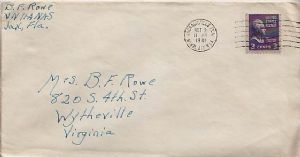 B.F. Rowe
Jax, Fla.
OCT
1941
3 CENTS 3
Mrs. B.F. Rowe
820 S. 4th. St.
Wytheville
Virginia